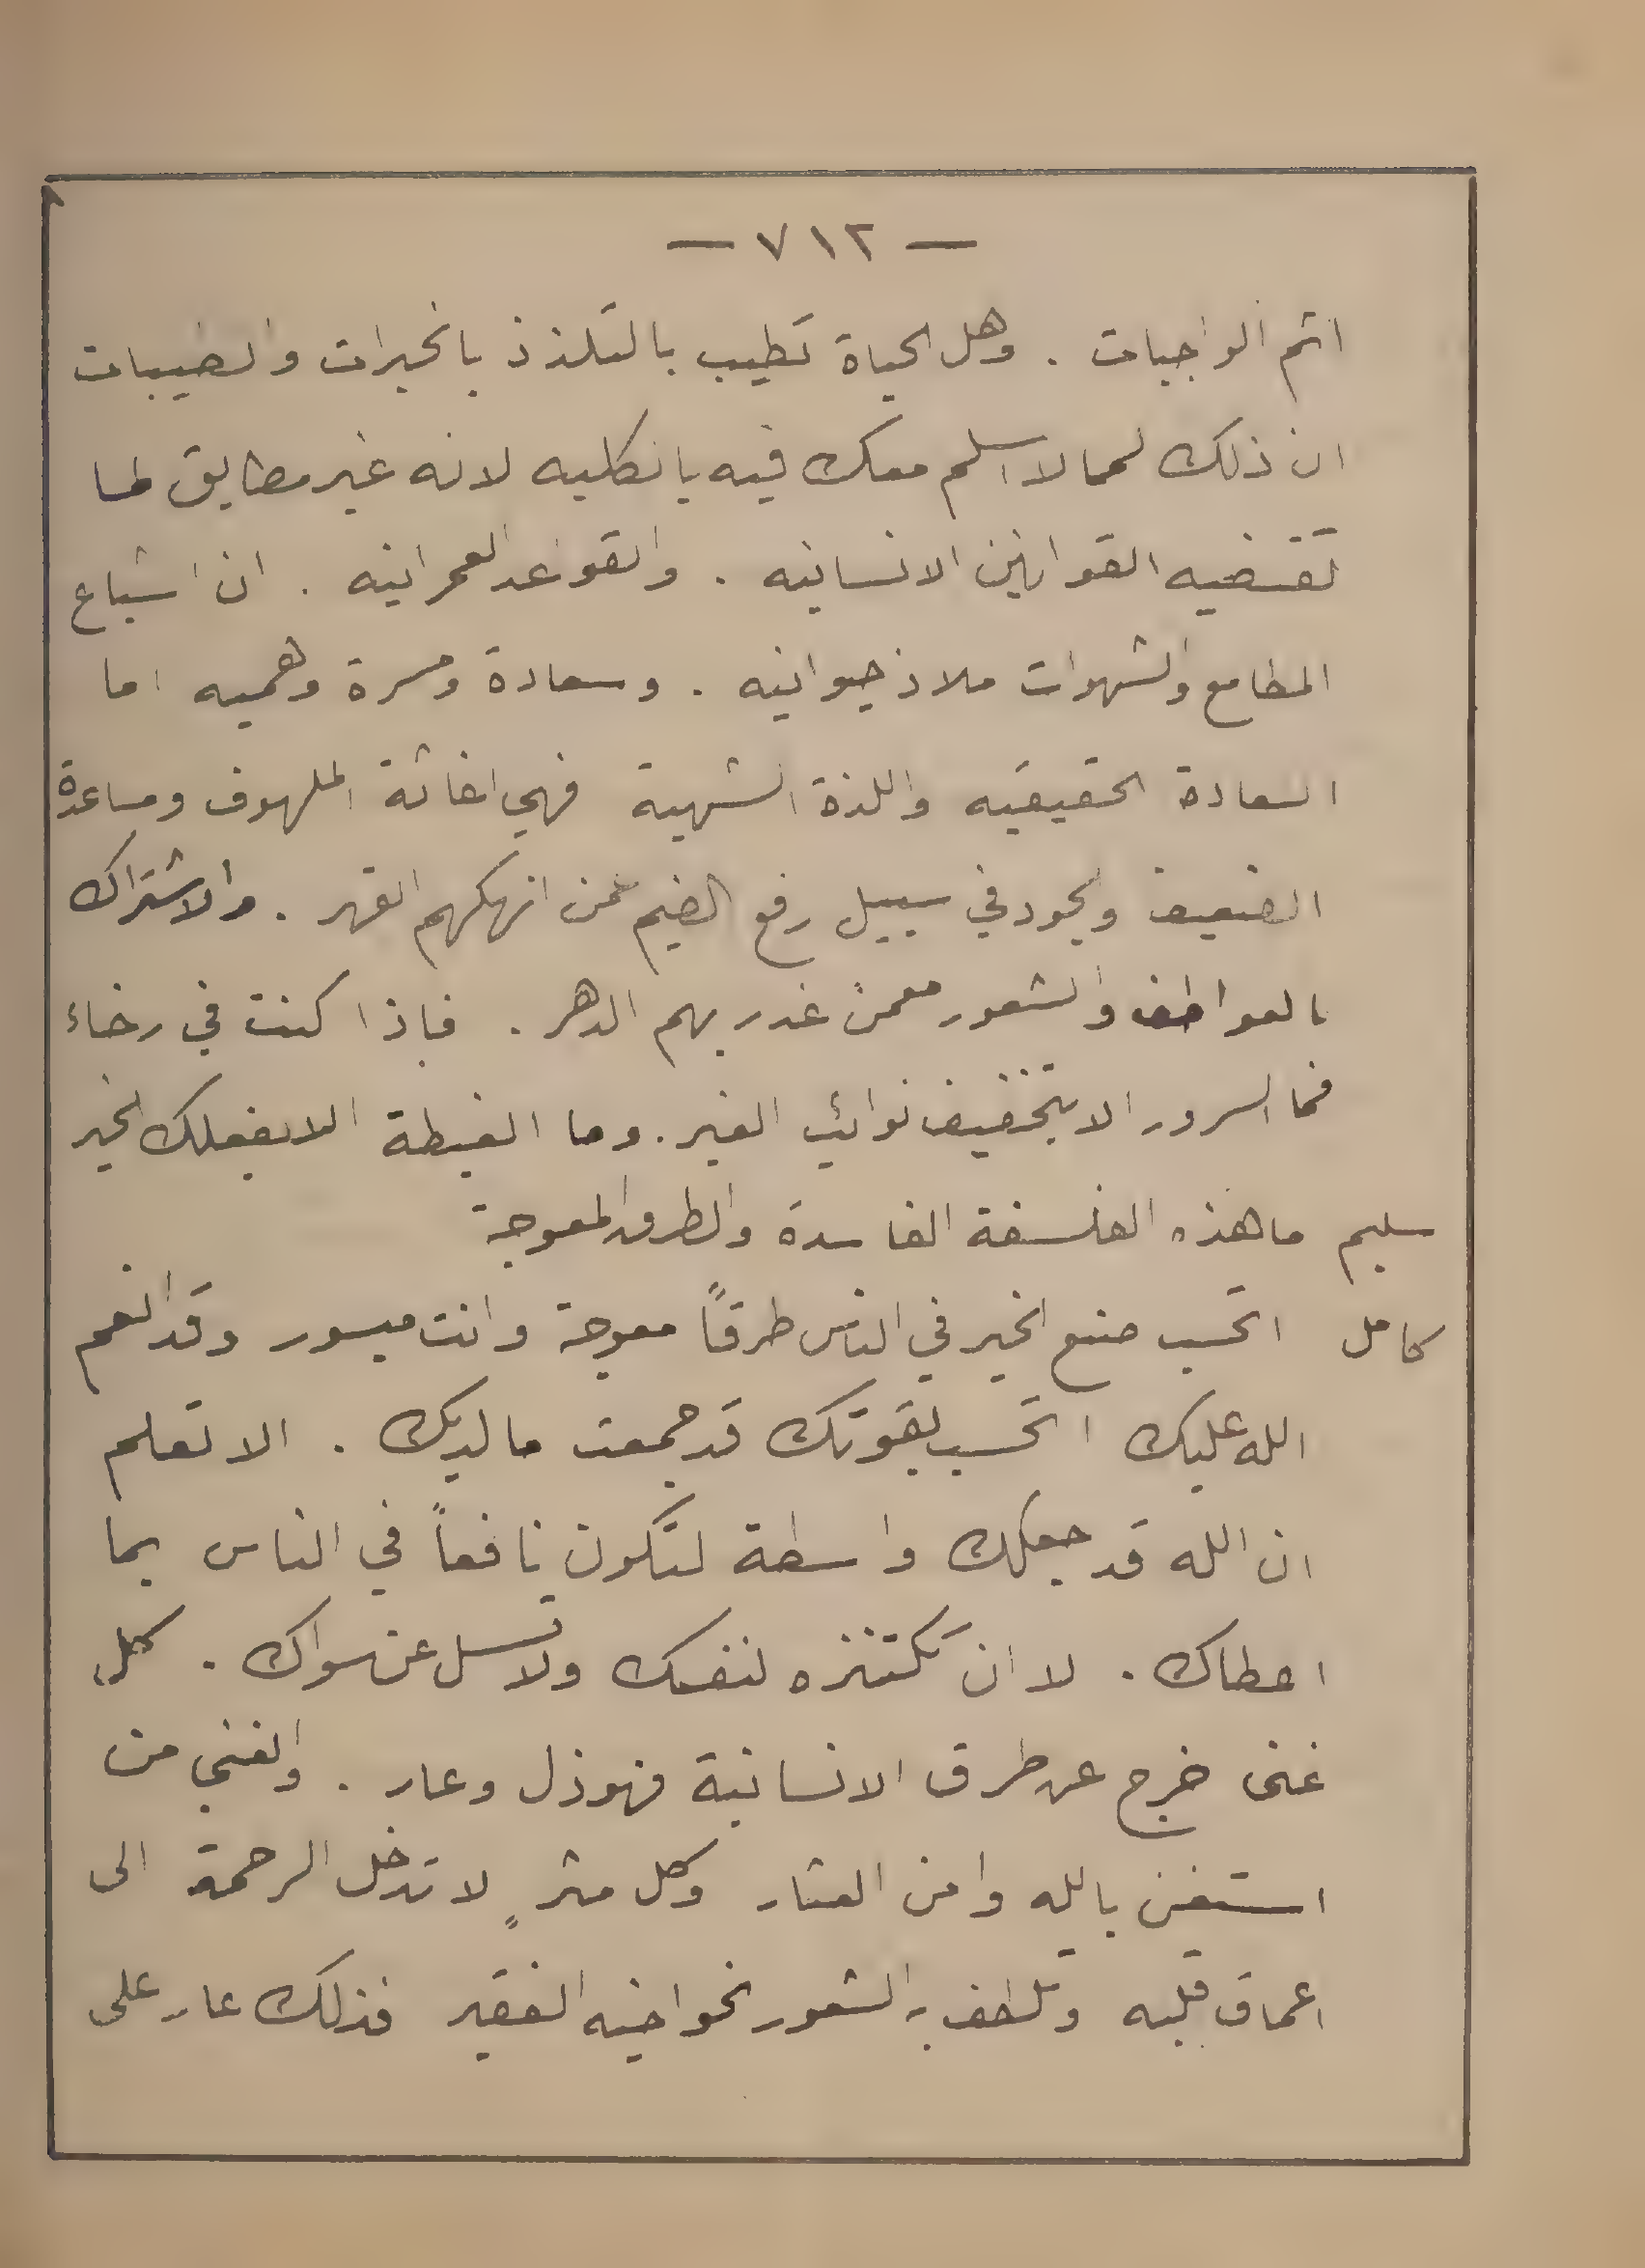 — ٧١٢ —
اتم الواجبات . وهل الحياة تطيب بالتلذذ بالخيرات والطيبات
ان ذلك لمما لا اسلم معك فيه بالكليه لانه غير مطابق لما
تقتضيه القوانين الانسانيه . والقواعد العمرانيه . ان اشباع
المطامع والشهوات ملاذ حيوانيه . وسعادة ومسرة وهميه اما
السعادة الحقيقيه واللذة الشهية فهي اغاثة الملهوف ومساعدة
الضعيف والجود في سبيل رفع الضيم عمن انهكهم القهر . والاشتراك
بالعواطف والشعور معمن غدر بهم الدهر . فاذا كنت في رخاء
فما السرور الا بتخفيف نوائب الغير . وما الغبطة الا بفعلك الخير
سليم ما هذه الفلسفة الفاسدة والطرق المعوجة
كامل اتحسب صنع الخير في الناس طرقاً معوجة وانت ميسور وقد انعم
الله عليك اتحسب بقوتك قد جمعت ما لديك . الا تعلم
ان الله قد جعلك واسطة لتكون نافعاً في الناس بما
اعطاك . لا ان تكتنزه لنفسك ولا تسل عن سواك . كل
غنى خرج عن طرق الانسانية فهو ذل وعار . والغني من
استغنى بالله وامن العثار وكل مثرٍ لا تدخل الرحمة الى
اعماق قلبه وتلطف به الشعور نحو اخيه الفقير فذلك عار على